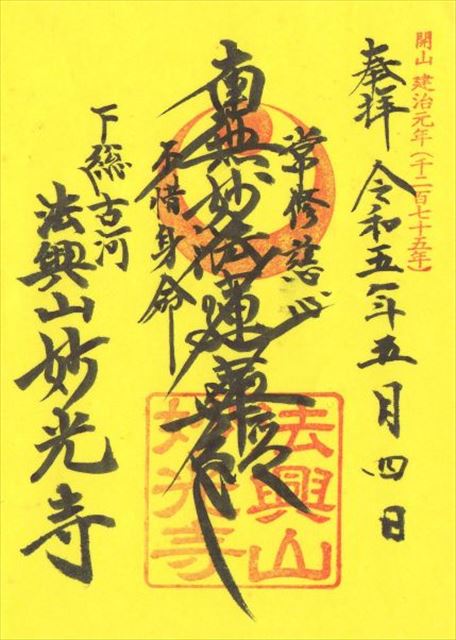 開山 建治元年(千二百七十五年)
奉拝 令和五年五月四日
常修慈心
南無妙法蓮華経
不惜身命
下総古河
法興山妙光寺
法興山
妙光寺